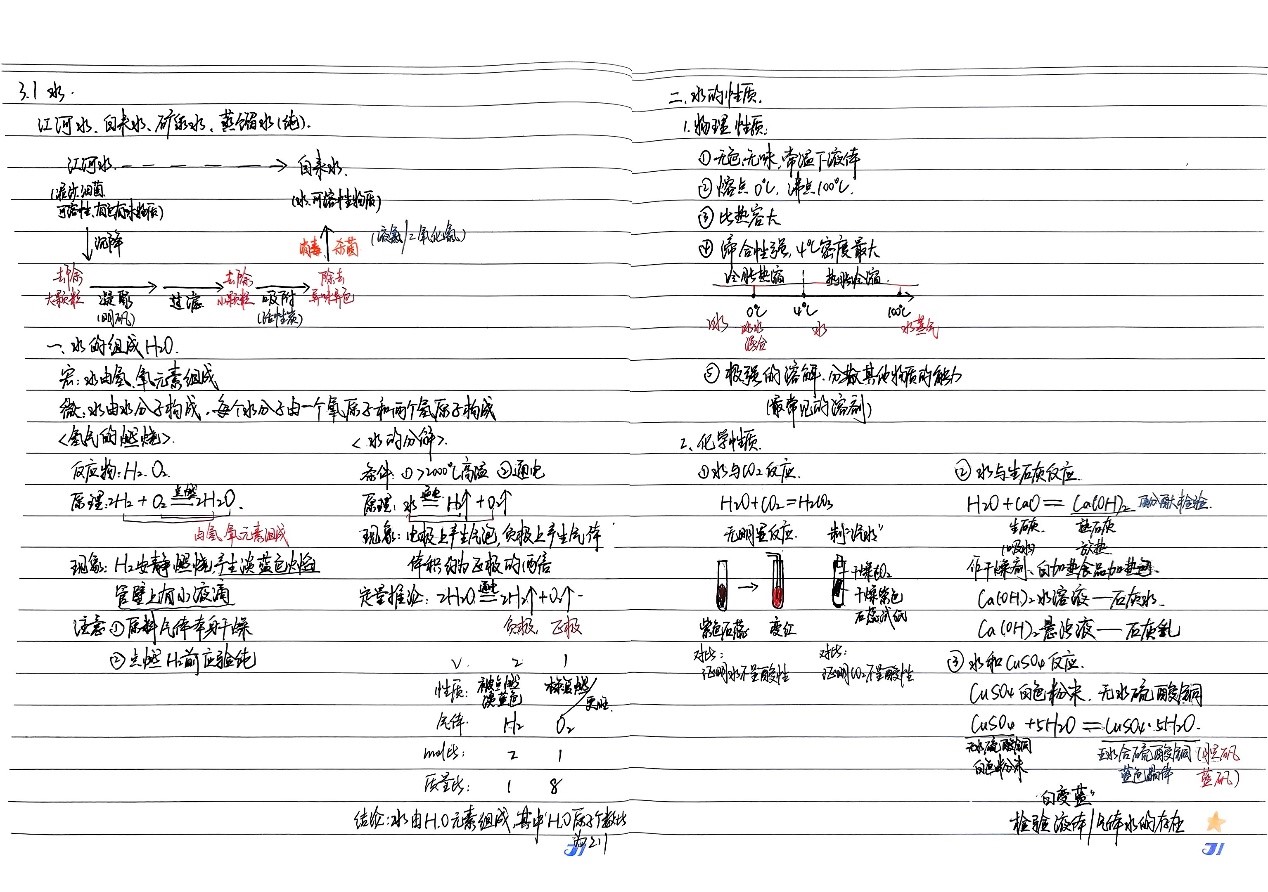 3.1 水.
江河水、自来水、矿泉水、蒸馏水(纯).
江河水 → 自来水.
(泥沙、细菌 (水、可溶性物质)
可溶性、有色有味物质)
沉降 消毒 杀菌 (液氯/二氧化氯)
去除 去除 除去
大颗粒 凝聚 过滤 小颗粒 吸附 异味异色
(明矾) (活性炭)
一、水的组成 H₂O.
宏: 水由氢、氧元素组成
微: 水由水分子构成, 每个水分子由一个氧原子和两个氢原子构成
<氢气的燃烧>.
反应物: H₂、O₂.
原理: 2H₂ + O₂ 点燃 2H₂O.
由氢、氧元素组成
现象: H₂安静燃烧, 产生淡蓝色火焰
管壁上有小液滴
注意 ① 原料气体本身干燥
② 点燃 H₂前应验纯
<水的分解>.
条件: ①>2000℃高温 ②通电
原理: 水 通电 H₂↑ + O₂↑
现象: 电极上产生气泡, 负极上产生气体
体积约为正极的两倍
定量推论: 2H₂O 通电 2H₂↑+O₂↑
负极 正极
V. 2 1
性质: 被点燃
淡蓝色 更旺
气体. H₂ O₂
mol比: 2 1
质量比: 1 8
结论: 水由H、O元素组成, 其中H、O原子个数比
为2:1
JI
二、水的性质.
1.物理性质:
①无色、无味, 常温下液体
②熔点 0℃, 沸点100℃.
③比热容大
④缔合性强, 4℃密度最大
冷胀热缩 热胀冷缩
0℃ 4℃ 100℃
冰 冰水 水 水蒸气
混合
⑤极强的溶解、分散其他物质的能力
(最常见的溶剂)
2.化学性质.
①水与CO₂反应.
H₂O+CO₂=H₂CO₃
无明显反应. 制“汽水”
→ 干燥CO₂
干燥紫色
石蕊试纸
紫色石蕊 变红
对比: 对比:
证明水不呈酸性 证明CO₂不呈酸性
②水与生石灰反应.
H₂O + CaO = Ca(OH)₂
生石灰 熟石灰
(吸水) 放热
作干燥剂、自加热食品加热包.
Ca(OH)₂水溶液—石灰水.
Ca(OH)₂悬浊液—石灰乳
③水和CuSO₄反应.
CuSO₄白色粉末, 无水硫酸铜
CuSO₄ +5H₂O =CuSO₄·5H₂O.
无水硫酸铜 五水合硫酸铜 (胆矾
白色粉末 蓝色晶体 蓝矾)
“白变蓝”
检验液体/气体水的存在
JI